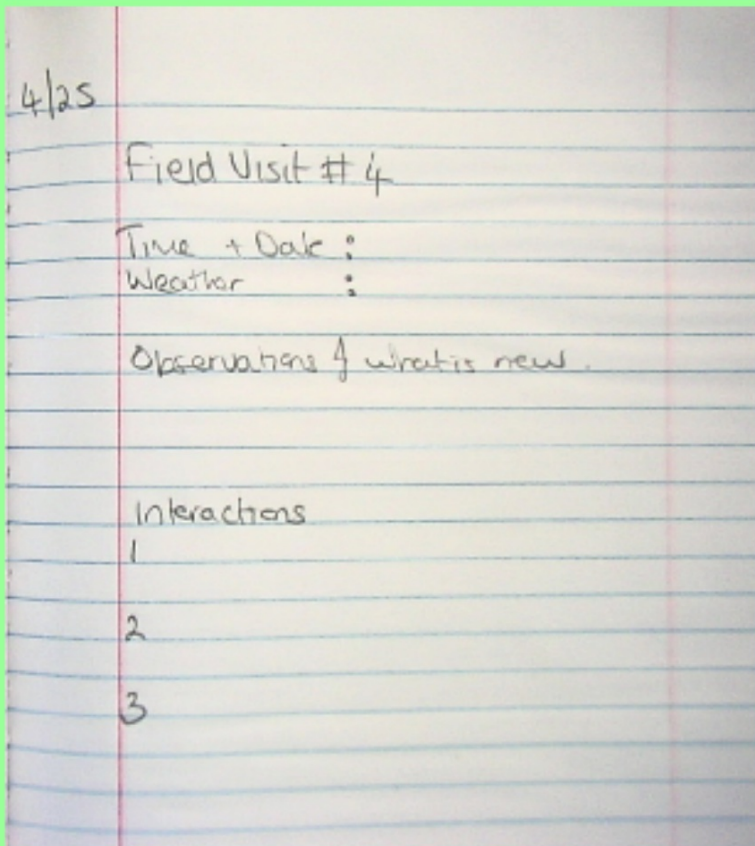 4/25
Field Visit # 4
Time + Date :
Weather :
Observations of what is new.
Interactions
1
2
3